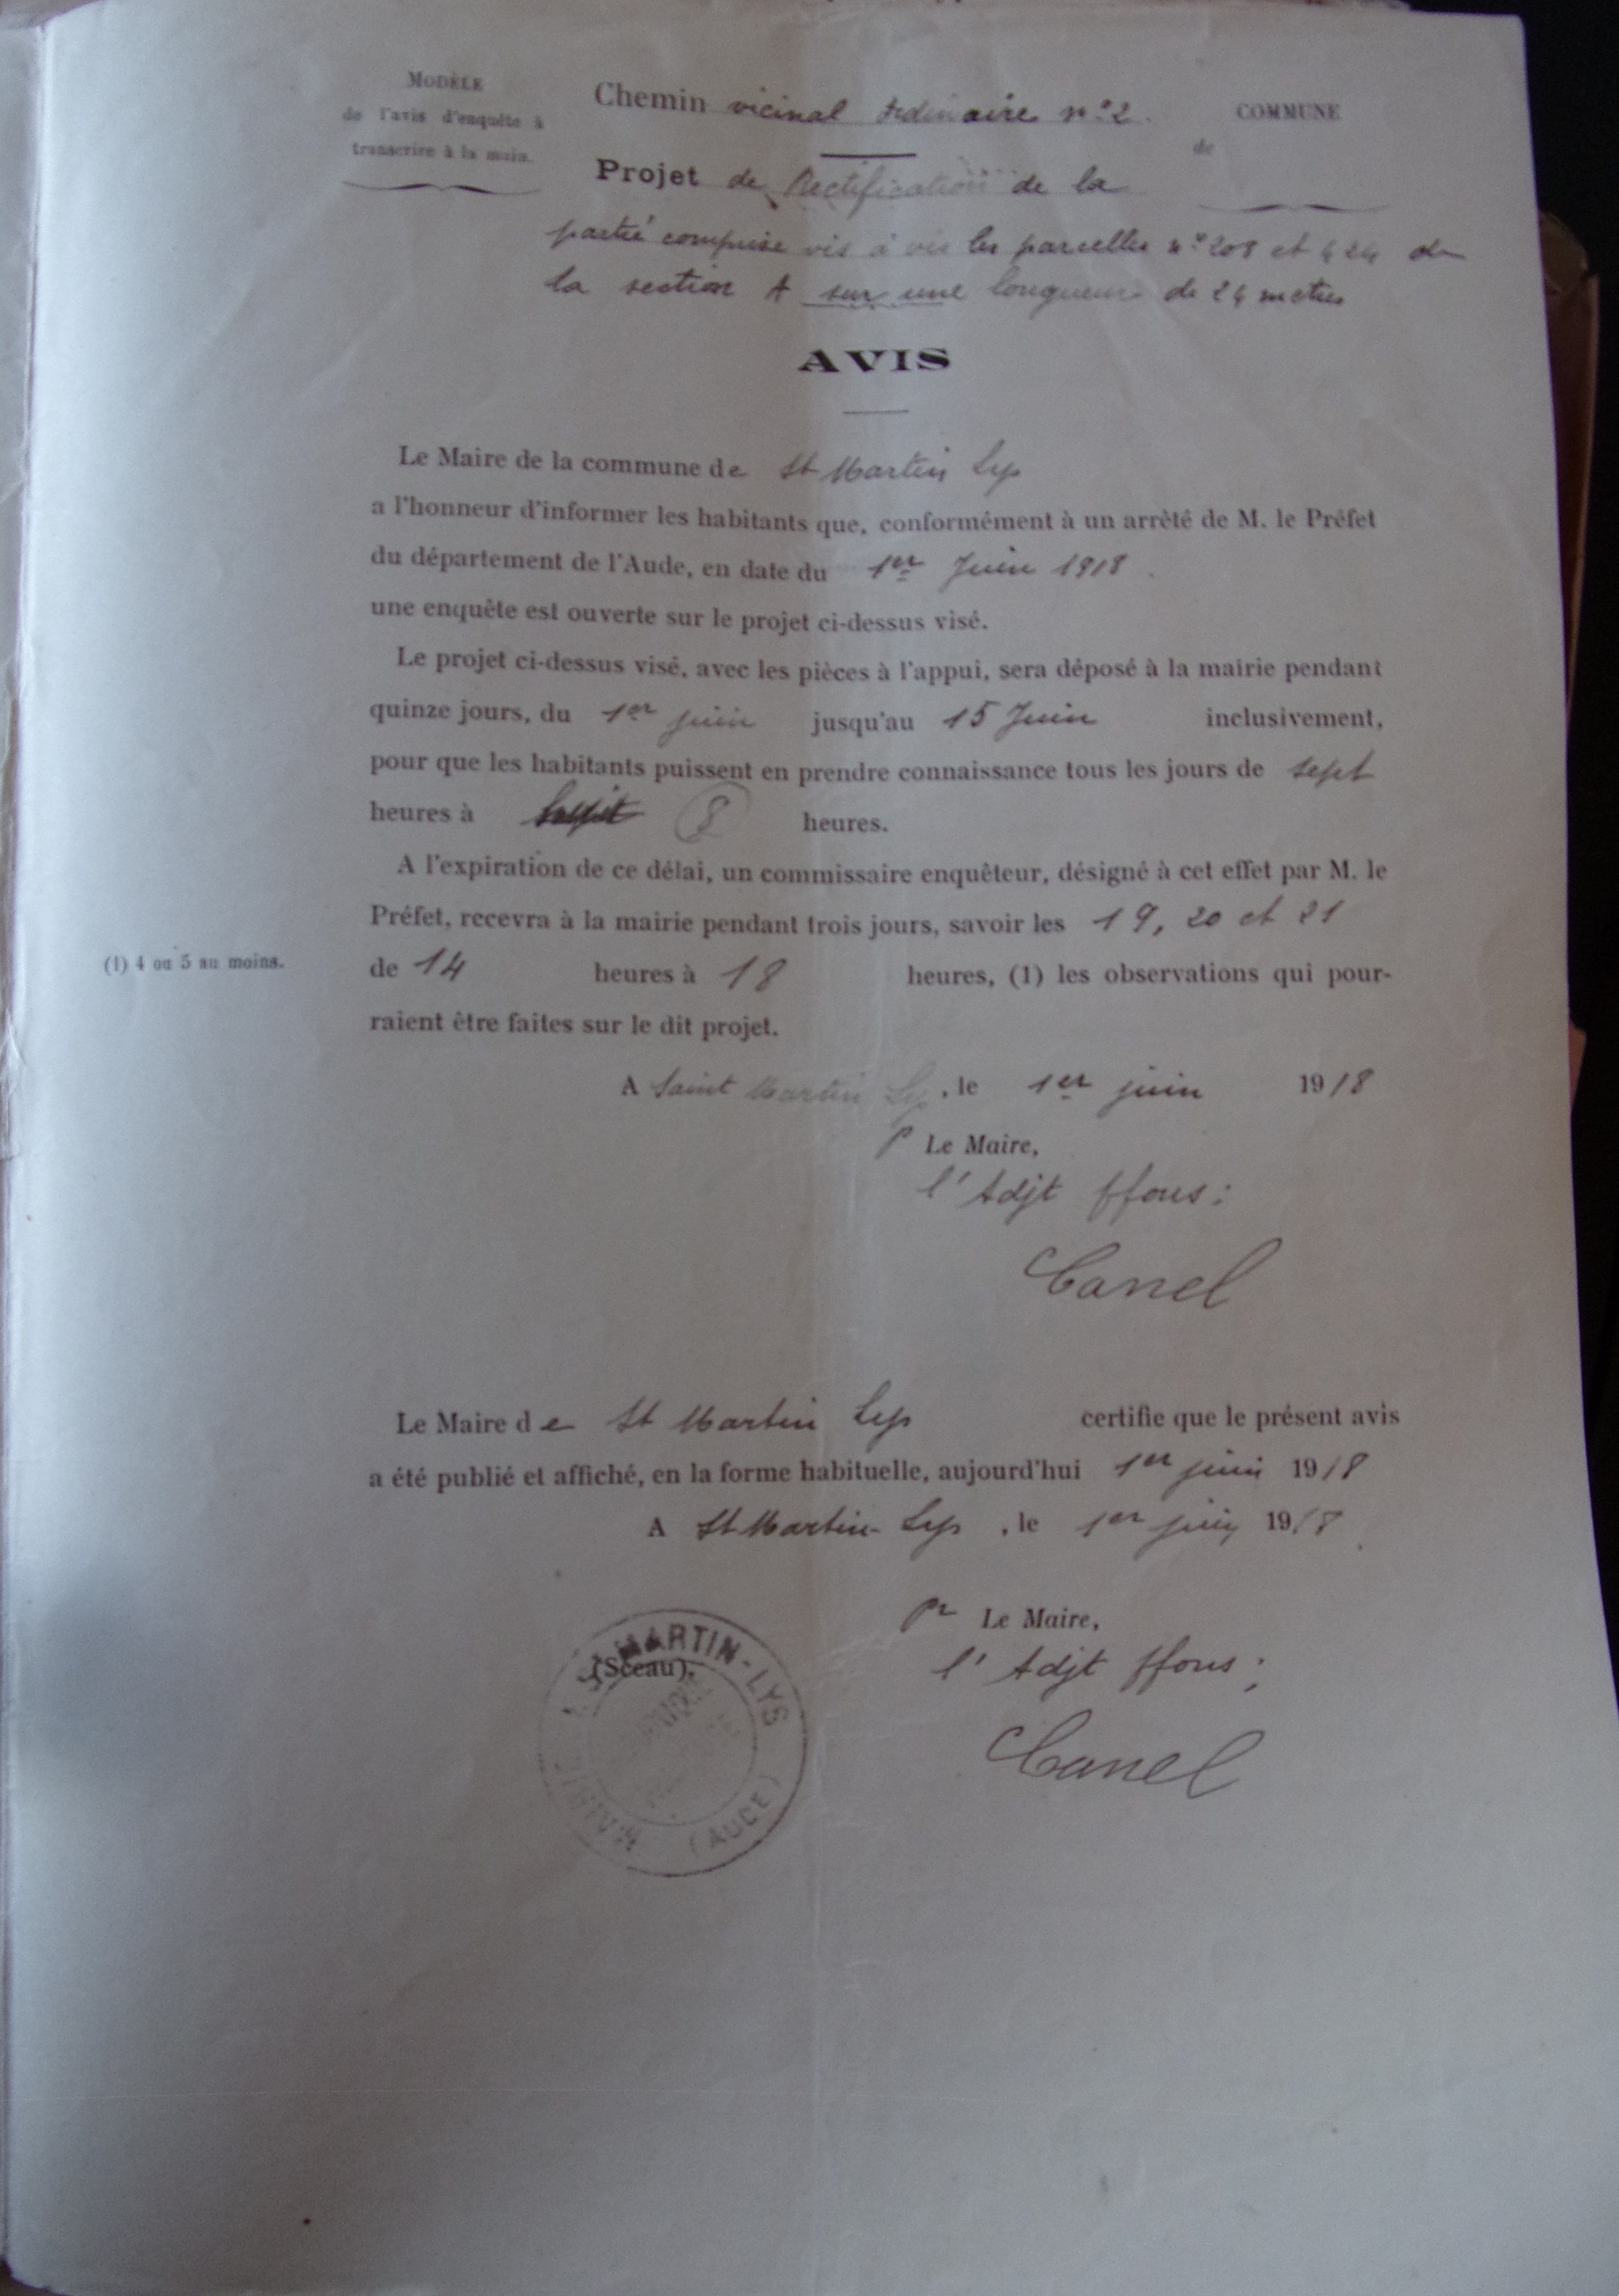 MODÈLE
de l'avis d'enquête à
transcrire à la main.
Chemin vicinal ordinaire n° 2.
COMMUNE
de
Projet de Rectification de la
partie comprise vis à vis les parcelles n° 208 et 424 de
la section A sur une longueur de 24 metres
AVIS
Le Maire de la commune de St Martin Lys
a l'honneur d'informer les habitants que, conformément à un arrêté de M. le Préfet
du département de l'Aude, en date du 1er Juin 1918.
une enquête est ouverte sur le projet ci-dessus visé.
Le projet ci-dessus visé, avec les pièces à l'appui, sera déposé à la mairie pendant
quinze jours, du 1er juin jusqu'au 15 Juin inclusivement,
pour que les habitants puissent en prendre connaissance tous les jours de sept
heures à 8 heures.
A l'expiration de ce délai, un commissaire enquêteur, désigné à cet effet par M. le
Préfet, recevra à la mairie pendant trois jours, savoir les 19, 20 et 21
(1) 4 ou 5 au moins.
de 14 heures à 18 heures, (1) les observations qui pour-
raient être faites sur le dit projet.
A Saint Martin Lys, le 1er juin 1918
P Le Maire,
l'Adjt ffons:
Canel
Le Maire de St Martin Lys certifie que le présent avis
a été publié et affiché, en la forme habituelle, aujourd'hui 1er juin 1918
A St Martin-Lys, le 1er juin 1918.
Pr Le Maire,
l'Adjt ffons;
Canel
(Sceau).
MAIRIE DE ST MARTIN-LYS
(AUDE)